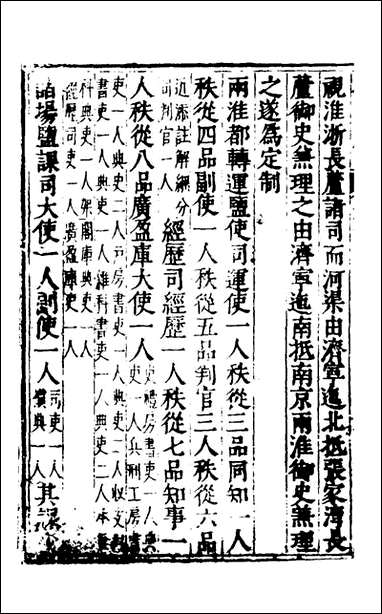 視淮浙長蘆諸司而河渠由濟寧迤北抵張家灣長
蘆御史兼理之由濟寧迤南抵南京兩淮御史兼理
之遂為定制
兩淮都轉運鹽使司運使一人秩從三品同知一人
秩從四品副使一人秩從五品判官三人秩從六品
近添註解綱分
司判官一人
經歷司經歷一人秩從七品知事一
人秩從八品廣盈庫大使一人
吏禮房書吏一人典
吏一人兵刑工房書
吏一人典吏二人戶房書吏一人典吏二人收支
書吏一人典吏一人雜科書吏一人典吏二人本
科典吏一人架閣庫典吏一人
經歷司吏一人廣盈庫吏一人
諸場鹽課司大使一人副使一人
司吏一人
攢典一人
其